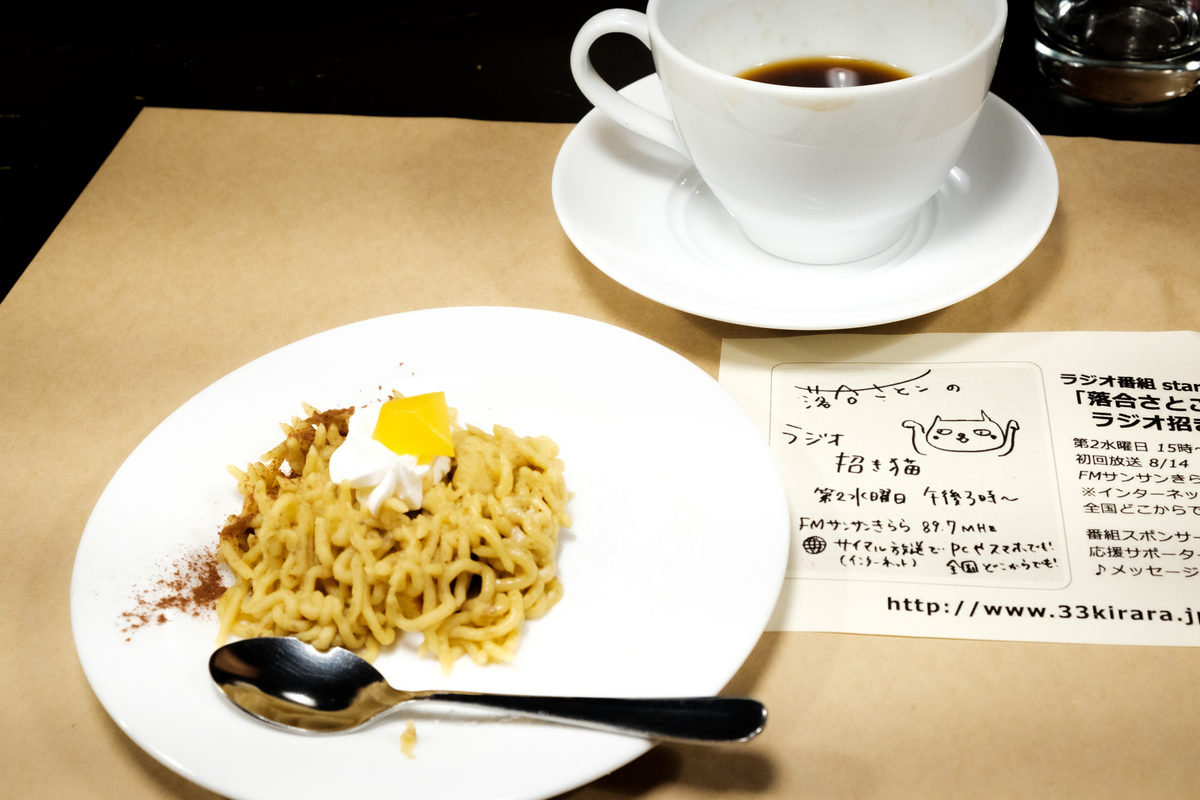 落合さとこの
ラジオ
招き猫
第2水曜日 午後3時〜
FMサンサンきらら 89.7MHz
サイマル放送で PCやスマホでも!
(インターネット) 全国どこからでも!
ラジオ番組 star
「落合さとこ
ラジオ招き
第2水曜日 15時~
初回放送 8/14
FMサンサンきら
※インターネッ
全国どこからで
番組スポンサー
応援サポータ
♪メッセージ
http://www.33kirara.jp